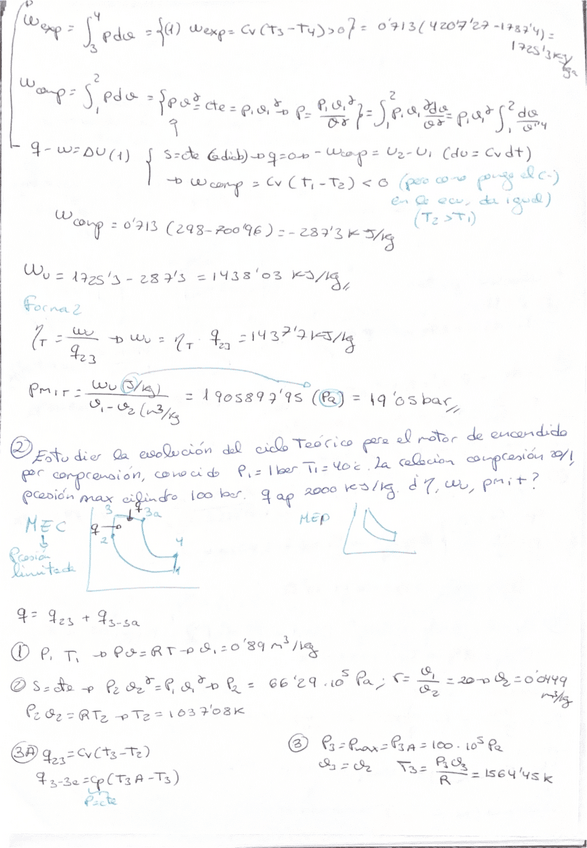 Wexp = ∫₃⁴ pdv = {(1) Wexp = Cv(T3-T4) > 0} = 0'713 (4207'27 - 1787'4) = 1725'3 kJ/kg
Wcomp = ∫₁² pdv = {pv^γ = cte = p₁v₁^γ → p = p₁v₁^γ/v^γ} = ∫₁² p₁v₁^γ dv/v^γ = p₁v₁^γ ∫₁² dv/v^γ
q - w = ΔU (1) { S = cte (adiab) → q = 0 → -Wcomp = U2 - U1 (du = Cv dt)
→ Wcomp = Cv (T1 - T2) < 0 (pero como pongo el (-)
en la ecu, da igual)
(T2 > T1)
Wcomp = 0'713 (298 - 700'96) = -287'3 kJ/kg
Wu = 1725'3 - 287'3 = 1438'03 kJ/kg
Forma 2
ηT = wu/q23 → wu = ηT · q23 = 1437'7 kJ/kg
pmiT = wu (J/kg) / v1 - v2 (m³/kg) = 1905897'95 (Pa) = 19'05 bar
② Estudier la evolución del ciclo Teórico para el motor de encendido
por comprensión, conocido P1 = 1 bar T1 = 40 c. La relacion compresión 20/1,
presión max cilindro 100 bar. q ap 2000 kJ/kg. ¿η, wu, pmit?
MEC
Presión
limitada
q
3
q
3a
2
4
1
MEP
q = q23 + q3-3a
① P1 T1 → Pv = RT → v1 = 0'89 m³/kg
② S = cte → P2 v2^γ = P1 v1^γ → P2 = 66'29 · 10⁵ Pa; r = v1/v2 = 20 → v2 = 0'0449 m³/kg
P2 v2 = RT2 → T2 = 1037'08 K
3A q23 = Cv (T3 - T2)
q3-3a = Cp (T3A - T3)
P cte
③ P3 = Pmax = P3A = 100 · 10⁵ Pa
v3 = v2 T3 = P3v3/R = 1564'45 K